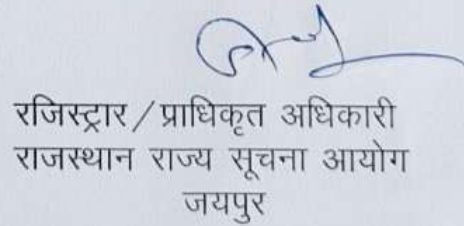 रजिस्ट्रार / प्राधिकृत अधिकारी
राजस्थान राज्य सूचना आयोग
जयपुर